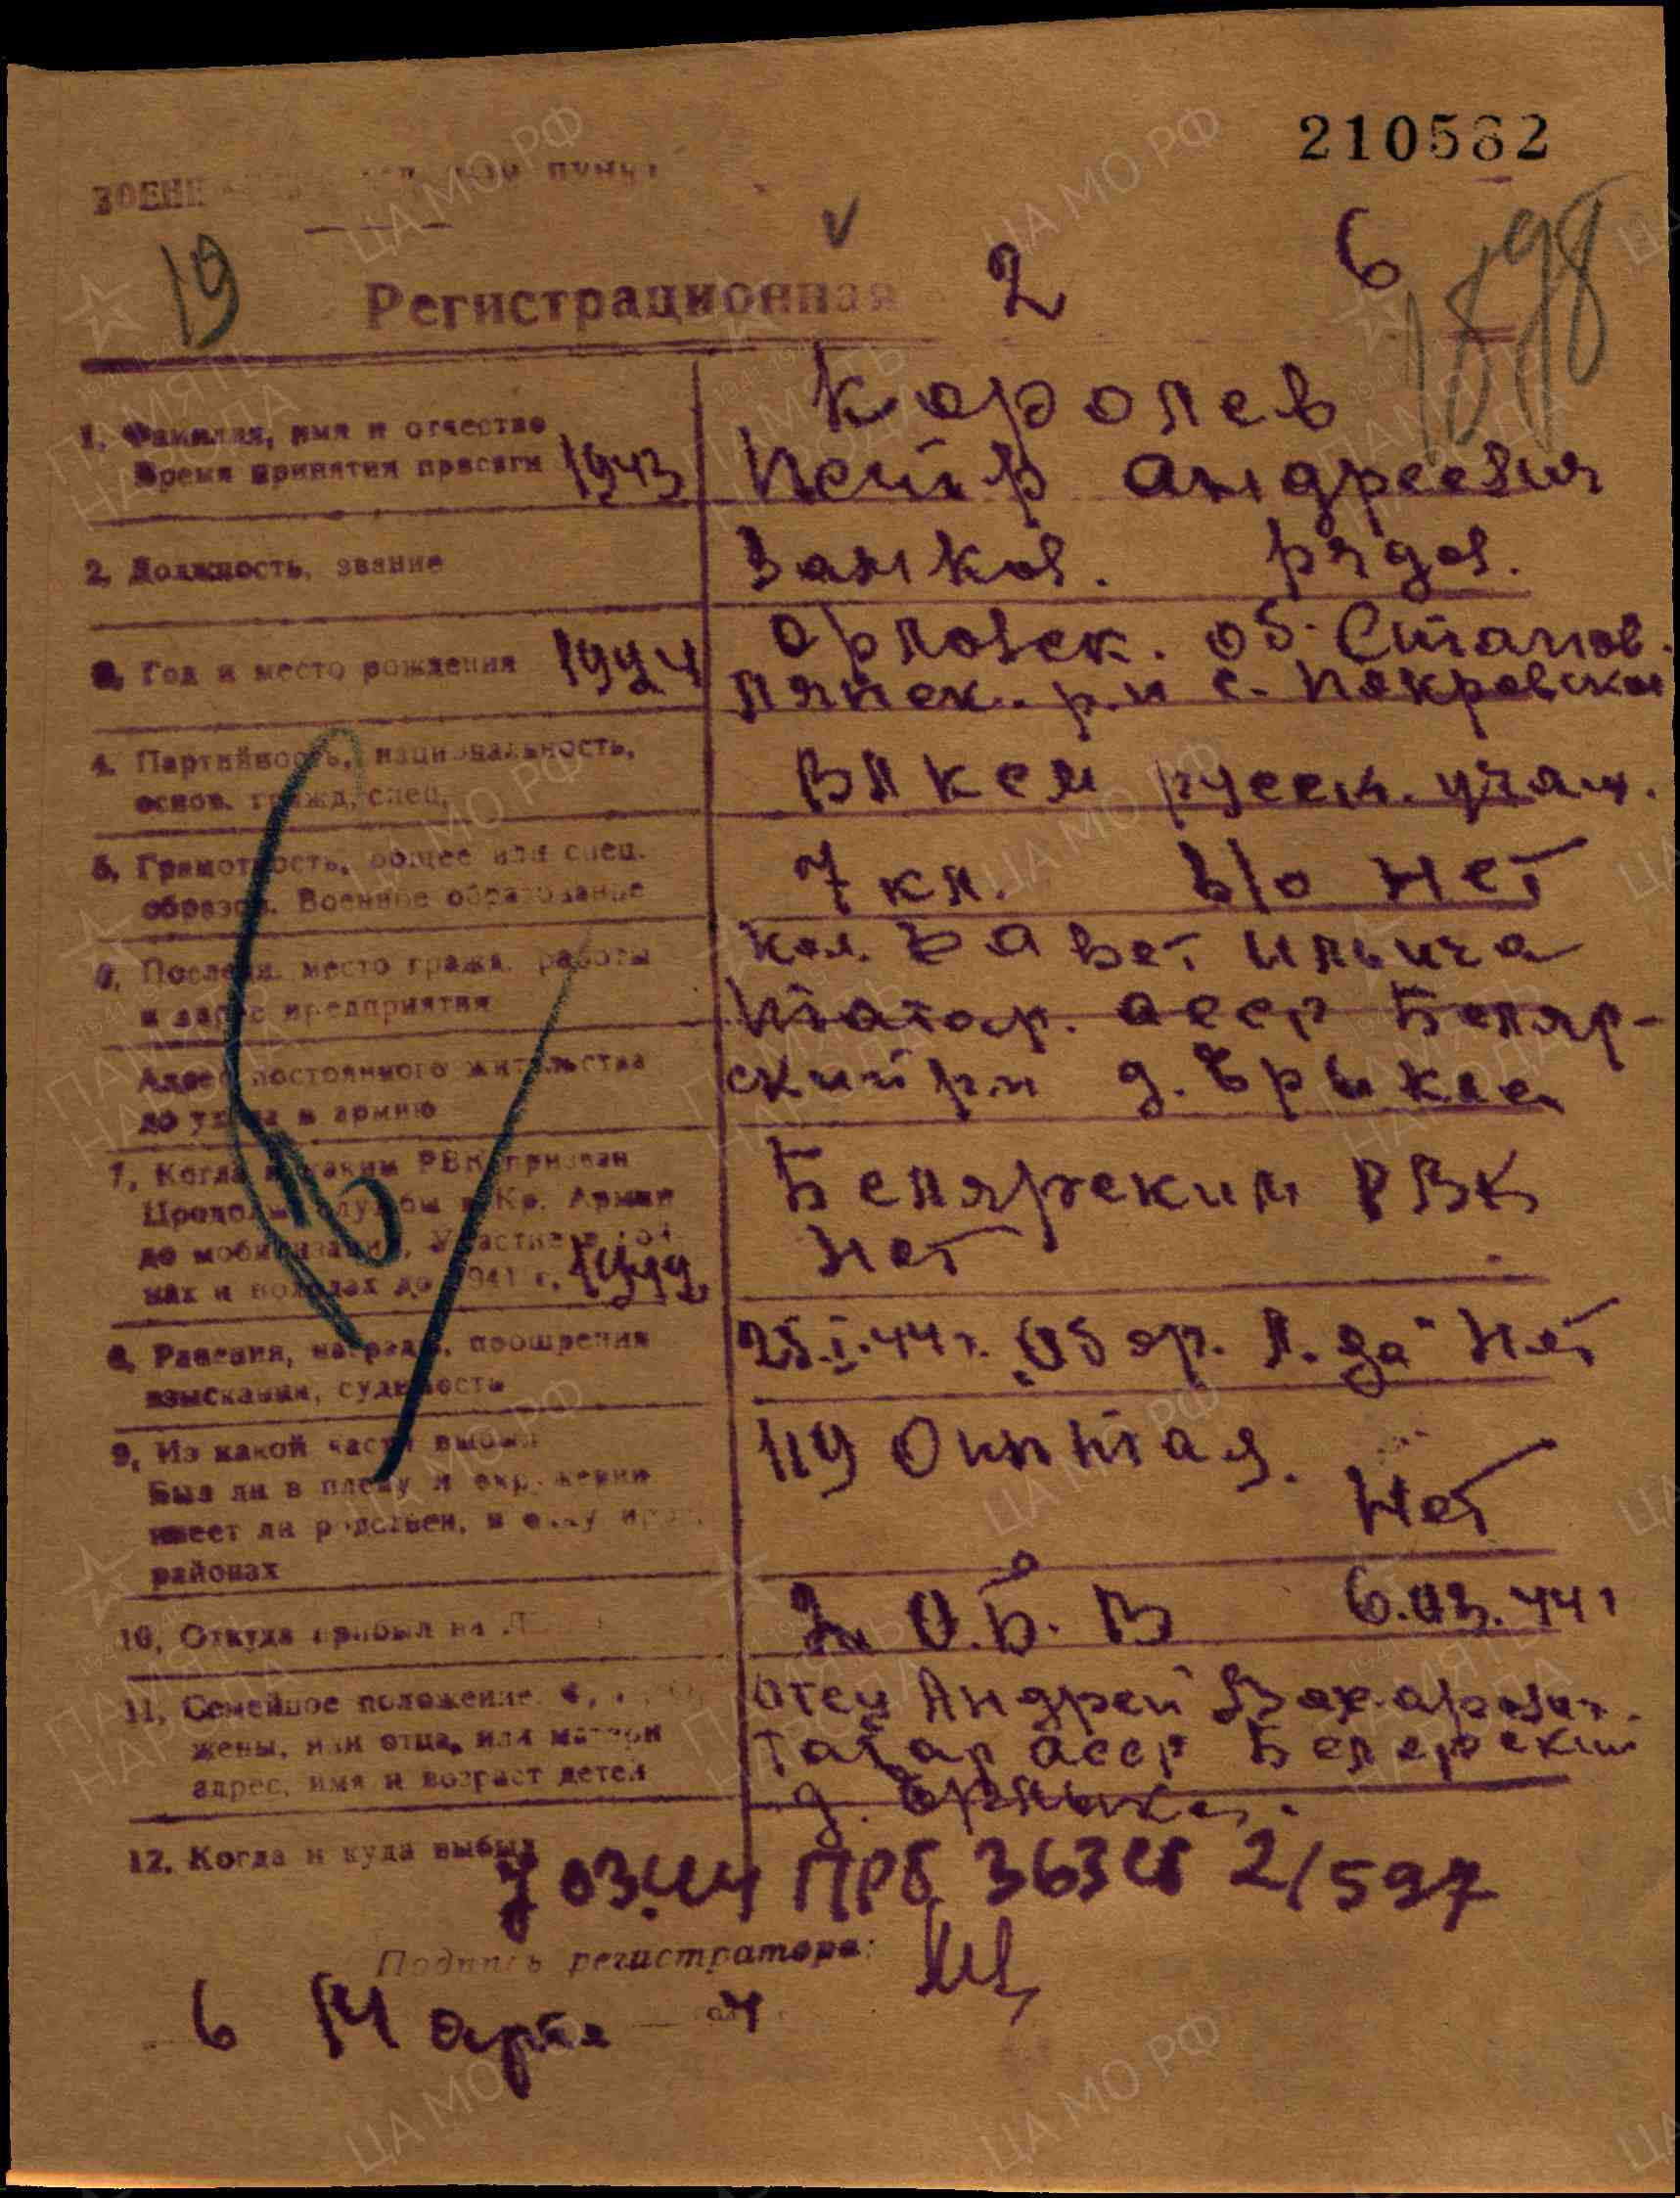 210582
19
2
6
1898
Регистрационная
1. Фамилия, имя и отчество
Время принятия присяги 1943
Королев
Петр Андреевич
2. Должность, звание
рядов.
3. Год и место рождения
Орловск. об. Станов
р.н с. Покровское
4. Партийность, национальность,
основ. гражд. спец.
ВЛКСМ русск. учащ.
5. Грамотность, общее или спец.
образов. Военное образование
7 кл. в/о нет
6. Последн. место гражд. работы
и адрес предприятия
Кол. Завет Ильича
Татар. АССР Беляр-
Адрес постоянного жительства
до ухода в армию
ский р.н д. Ерыкла
7. Когда и каким РВК призван
Продолж. службы в Кр. Армии
до мобилизации, Участие в вой
нах и походах до 1941 г. 1942
Белярским РВК
нет
8. Ранения, награды, поощрения
взыскания, судимость
25.I.44 г. нет
9. Из какой части выбыл
Был ли в плену и окружении
имеет ли родствен. в
районах
119
Нет
10. Откуда прибыл на
6.03.44 г
11. Семейное положение
жены, или отца, или матери
адрес, имя и возраст детей
отец Андрей Захарович.
Татар АССР Белярский
12. Когда и куда выбыл
7 03.44 363 2/597
Подпись регистратора:
6 Марта 4